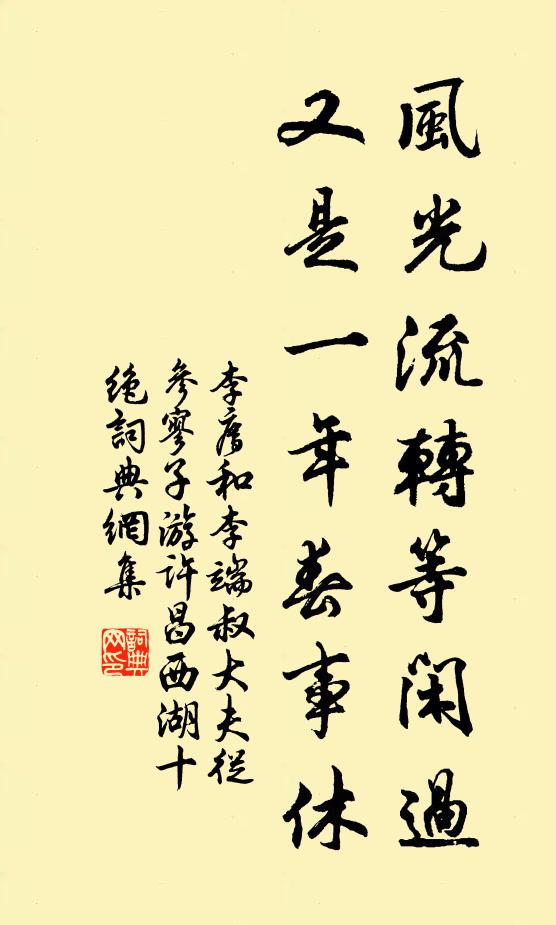 風光流轉等閑過
又是一年春事休
李廌和李端叔大夫從
參寥子游許昌西湖十
絶詞典網集
詞典
网印